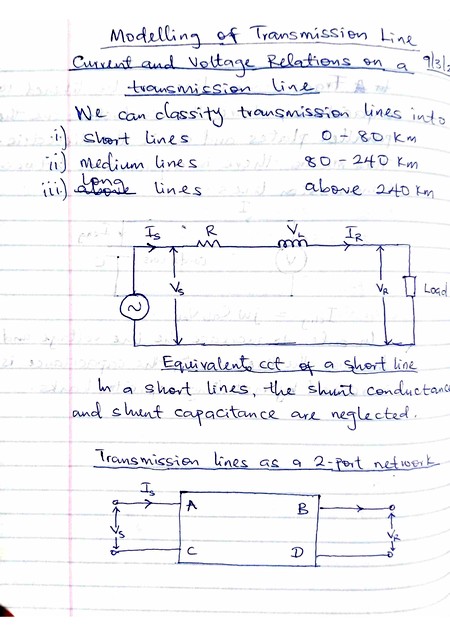 Modelling of Transmission Line
Current and Voltage Relations on a
transmission line
We can classify transmission lines into
i.) short lines 0 - 80 km
ii) medium lines 80 - 240 km
iii.) long lines above 240 km
Is R VL IR
Vs VR Load
Equivalent cct of a short line
In a short lines, the shunt conductance
and shunt capacitance are neglected.
Transmission lines as a 2-port network
Is
A B
Vs VR
C D